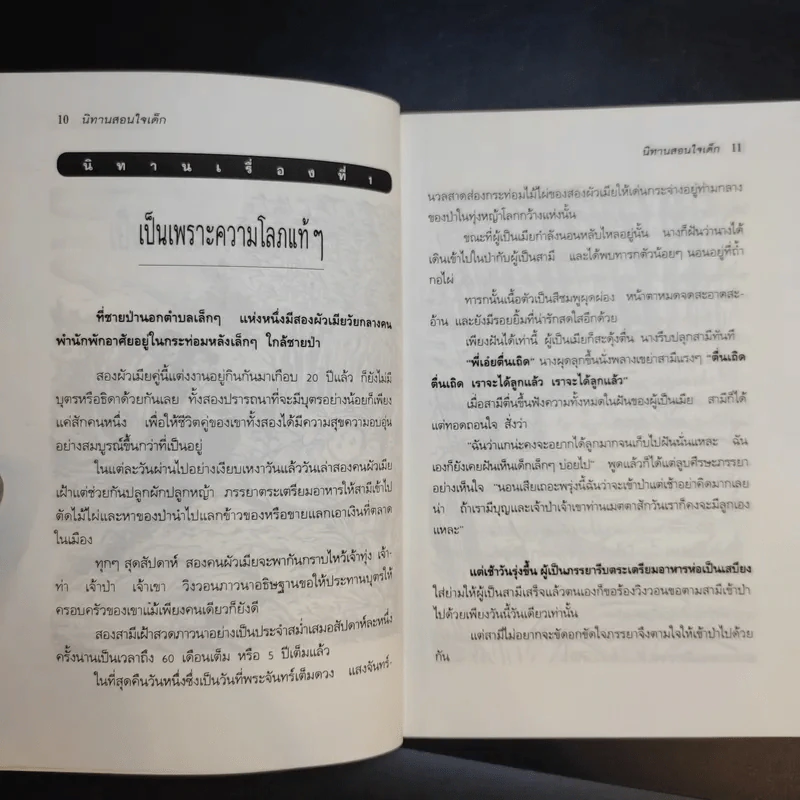 10 นิทานสอนใจเด็ก
นิทานเรื่องที่ ๑
เป็นเพราะความโลภแท้ ๆ
ที่ชายป่านอกตำบลเล็กๆ แห่งหนึ่งมีสองผัวเมียวัยกลางคน
พำนักพักอาศัยอยู่ในกระท่อมหลังเล็กๆ ใกล้ชายป่า
สองผัวเมียคู่นี้แต่งงานอยู่กินกันมาเกือบ 20 ปีแล้ว ก็ยังไม่มี
บุตรหรือธิดาด้วยกันเลย ทั้งสองปรารถนาที่จะมีบุตรอย่างน้อยก็เพียง
แค่สักคนหนึ่ง เพื่อให้ชีวิตคู่ของเขาทั้งสองได้มีความสุขความอบอุ่น
อย่างสมบูรณ์ขึ้นกว่าที่เป็นอยู่
ในแต่ละวันผ่านไปอย่างเงียบเหงาวันแล้ววันเล่าสองคนผัวเมีย
เฝ้าแต่ช่วยกันปลูกผักปลูกหญ้า ภรรยาตระเตรียมอาหารให้สามีเข้าไป
ตัดไม้ไผ่และหาของป่านำไปแลกข้าวของหรือขายแลกเอาเงินที่ตลาด
ในเมือง
ทุกๆ สุดสัปดาห์ สองคนผัวเมียจะพากันกราบไหว้เจ้าทุ่ง เจ้า-
ท่า เจ้าป่า เจ้าเขา วิงวอนภาวนาอธิษฐานขอให้ประทานบุตรให้
ครอบครัวของเขาแม้เพียงคนเดียวก็ยังดี
สองสามีเฝ้าสวดภาวนาอย่างเป็นประจำสม่ำเสมอสัปดาห์ละหนึ่ง
ครั้งนานเป็นเวลาถึง 60 เดือนเต็ม หรือ 5 ปีเต็มแล้ว
ในที่สุดคืนวันหนึ่งซึ่งเป็นวันที่พระจันทร์เต็มดวง แสงจันทร์-
นิทานสอนใจเด็ก 11
นวลสาดส่องกระท่อมไม้ไผ่ของสองผัวเมียให้เด่นกระจ่างอยู่ท่ามกลาง
ของป่าในทุ่งหญ้าโลกกว้างแห่งนั้น
ขณะที่ผู้เป็นเมียกำลังนอนหลับไหลอยู่นั้น นางก็ฝันว่านางได้
เดินเข้าไปในป่ากับผู้เป็นสามี และได้พบทารกตัวน้อยๆ นอนอยู่ที่ถ้ำ
กอไผ่
ทารกนั้นเนื้อตัวเป็นสีชมพูผุดผ่อง หน้าตาหมดจดสะอาดสะ-
อ้าน และยังมีรอยยิ้มที่น่ารักสดใสอีกด้วย
เพียงฝันได้เท่านี้ ผู้เป็นเมียก็สะดุ้งตื่น นางรีบปลุกสามีทันที
“พี่เอ๋ยตื่นเถิด” นางผุดลุกขึ้นนั่งพลางเขย่าสามีแรงๆ “ตื่นเถิด
ตื่นเถิด เราจะได้ลูกแล้ว เราจะได้ลูกแล้ว”
เมื่อสามีตื่นขึ้นฟังความทั้งหมดในฝันของผู้เป็นเมีย สามีก็ได้
แต่ทอดถอนใจ สั่งว่า
“ฉันว่าแกน่ะคงจะอยากได้ลูกมากจนเก็บไปฝันนั่นแหละ ฉัน
เองก็ยังเคยฝันเห็นเด็กเล็กๆ บ่อยไป” พูดแล้วก็ได้แต่ลูบศีรษะภรรยา
อย่างเห็นใจ “นอนเสียเถอะพรุ่งนี้ฉันว่าจะเข้าป่าแต่เช้าอย่าคิดมากเลย
น่า ถ้าเรามีบุญและเจ้าป่าเจ้าเขาท่านเมตตาสักวันเราก็คงจะมีลูกเอง
แหละ”
แต่เช้าวันรุ่งขึ้น ผู้เป็นภรรยารีบตระเตรียมอาหารห่อเป็นเสบียง
ใส่ย่ามให้ผู้เป็นสามีเสร็จแล้วตนเองก็ขอร้องวิงวอนขอตามสามีเข้าป่า
ไปด้วยเพียงวันนี้วันเดียวเท่านั้น
แต่สามีไม่อยากจะขัดอกขัดใจภรรยาจึงตามใจให้เข้าป่าไปด้วย
กัน